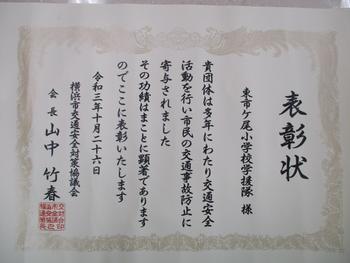 表彰状
東市ケ尾小学校学援隊 様
貴団体は多年にわたり交通安全
活動を行い市民の交通事故防止に
寄与されました
その功績はまことに顕著であります
のでここに表彰いたします
令和三年十月二十六日
横浜市交通安全対策協議会
会長 山中竹春